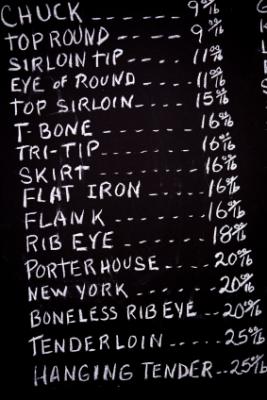 CHUCK ------ 9⁰⁰/lb
TOP ROUND ----- 9⁰⁰/lb
SIRLOIN TIP---- 11⁰⁰/lb
EYE of ROUND --- 11⁰⁰/lb
TOP SIRLOIN---- 15⁰⁰/lb
T-BONE ------- 16⁰⁰/lb
TRI-TIP------- 16⁰⁰/lb
SKIRT ------- 16⁰⁰/lb
FLAT IRON ----- 16⁰⁰/lb
FLANK ------- 16⁰⁰/lb
RIB EYE ------ 18⁰⁰/lb
PORTERHOUSE----- 20⁰⁰/lb
NEW YORK ------ 20⁰⁰/lb
BONELESS RIB EYE -- 20⁰⁰/lb
TENDERLOIN ---- 25⁰⁰/lb
HANGING TENDER--25⁰⁰/lb